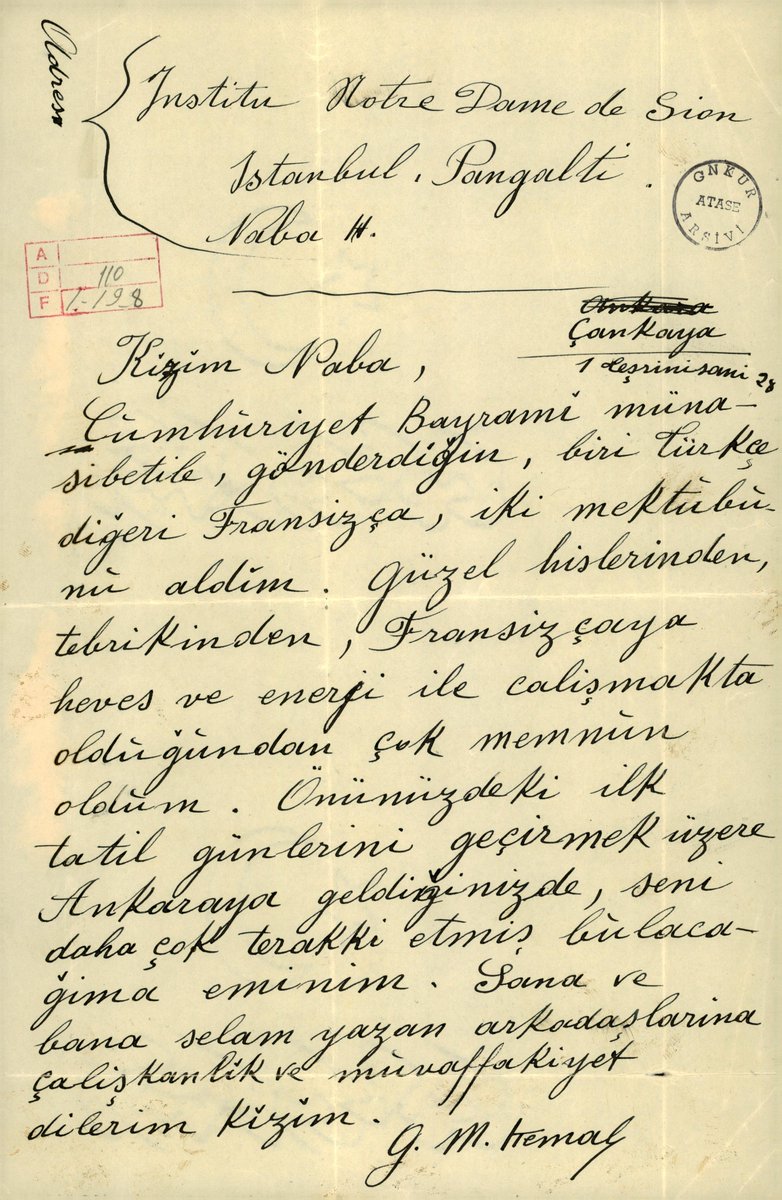 Adres
Institu Notre Dame de Sion
Istanbul. Pangalti.
Naba H.
GNKUR
ATASE
ARŞİVİ
A
D 110
F 1-198
Ankara
Çankaya
1 teşrinisani 28
Kizim Naba,
Cümhüriyet Bayramî müna-
sibetile, gönderdiğin, biri Türkçe
diğeri Fransizça, iki mektûbû-
nû aldîm. Güzel hislerinden,
tebrikinden, Fransizçaya
heves ve enerji ile calişmakta
oldûğûndan çok memnûn
oldûm. Önünüzdeki ilk
tatil günlerini geçirmek üzere
Ankaraya geldiğinizde, seni
daha çok terakki etmiş bûlaca-
ğima eminim. Sana ve
bana selam yazan arkadaşlarina
çalişkanlîk ve mûvaffakiyet
dilerim Kîzîm.
G. M. Kemal